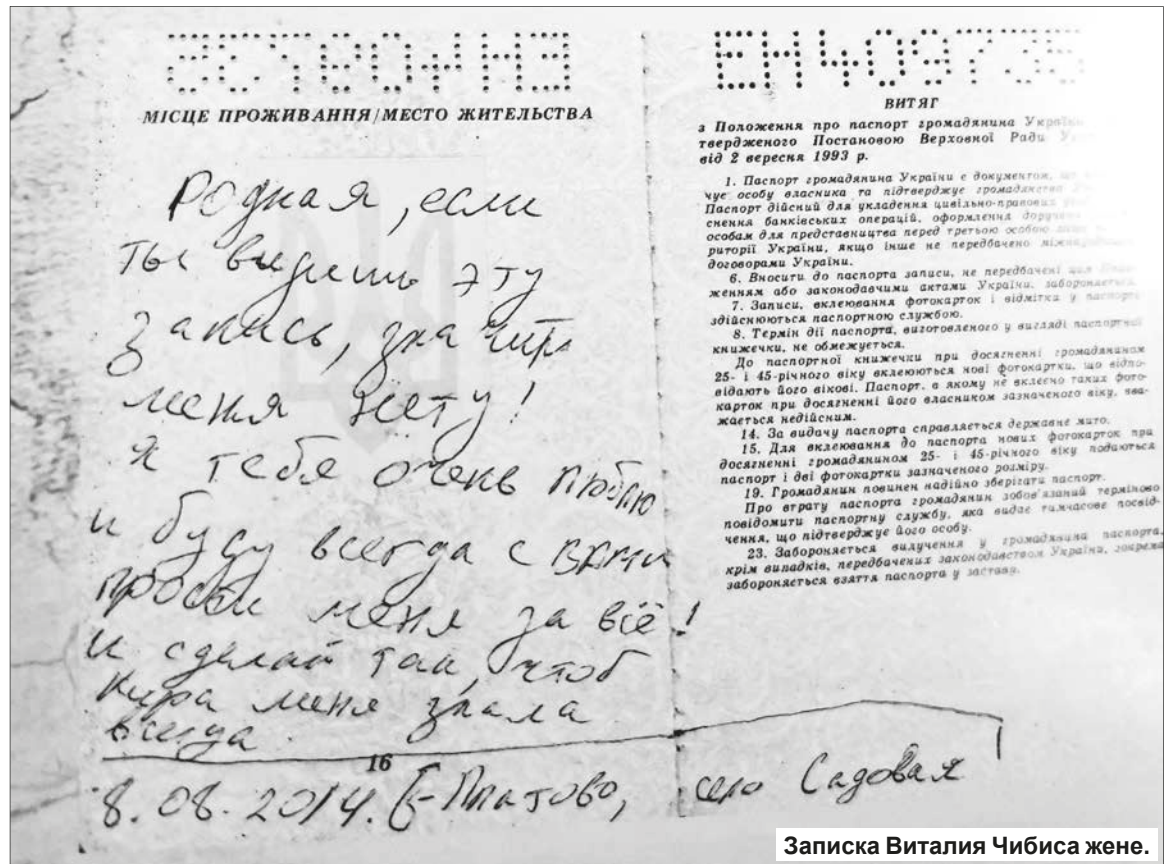 МІСЦЕ ПРОЖИВАННЯ/МЕСТО ЖИТЕЛЬСТВА
Родная, если
ты видишь эту
запись, значит
меня нету!
Я тебя очень люблю
и буду всегда с вами
прости меня за всё!
и сделай так, чтоб
Кира меня знала
всегда
16
8.08.2014. село Садовая
ЕН409735
ВИТЯГ
з Положення про паспорт громадянина України
твердженого Постановою Верховної Ради
від 2 вересня 1993 р.
1. Паспорт громадянина України є документом, що
чує особу власника та підтверджує громадянство
Паспорт дійсний для укладення цивільно-правових
снення банківських операцій, оформлення доручень
особам для представництва перед третьою особою
риторії України, якщо інше не передбачено міжнародними
договорами України.
6. Вносити до паспорта записи, не передбачені цим
женням або законодавчими актами України, забороняється.
7. Записи, вклеювання фотокарток і відмітки у паспорті
здійснюються паспортною службою.
8. Термін дії паспорта, виготовленого у вигляді паспортної
книжечки, не обмежується.
До паспортної книжечки при досягненні громадянином
25- і 45-річного віку вклеюються нові фотокартки, що відпо-
відають його вікові. Паспорт, в якому не вклеєно таких фото-
карток при досягненні його власником зазначеного віку, вва-
жається недійсним.
14. За видачу паспорта справляється державне мито.
15. Для вклеювання до паспорта нових фотокарток при
досягненні громадянином 25- і 45-річного віку подаються
паспорт і дві фотокартки зазначеного розміру.
19. Громадянин повинен надійно зберігати паспорт.
Про втрату паспорта громадянин зобов'язаний терміново
повідомити паспортну службу, яка видає тимчасове посвід-
чення, що підтверджує його особу.
23. Забороняється вилучення у громадянина паспорта,
крім випадків, передбачених законодавством України, зокрема
забороняється взяття паспорта у заставу.
Записка Виталия Чибиса жене.